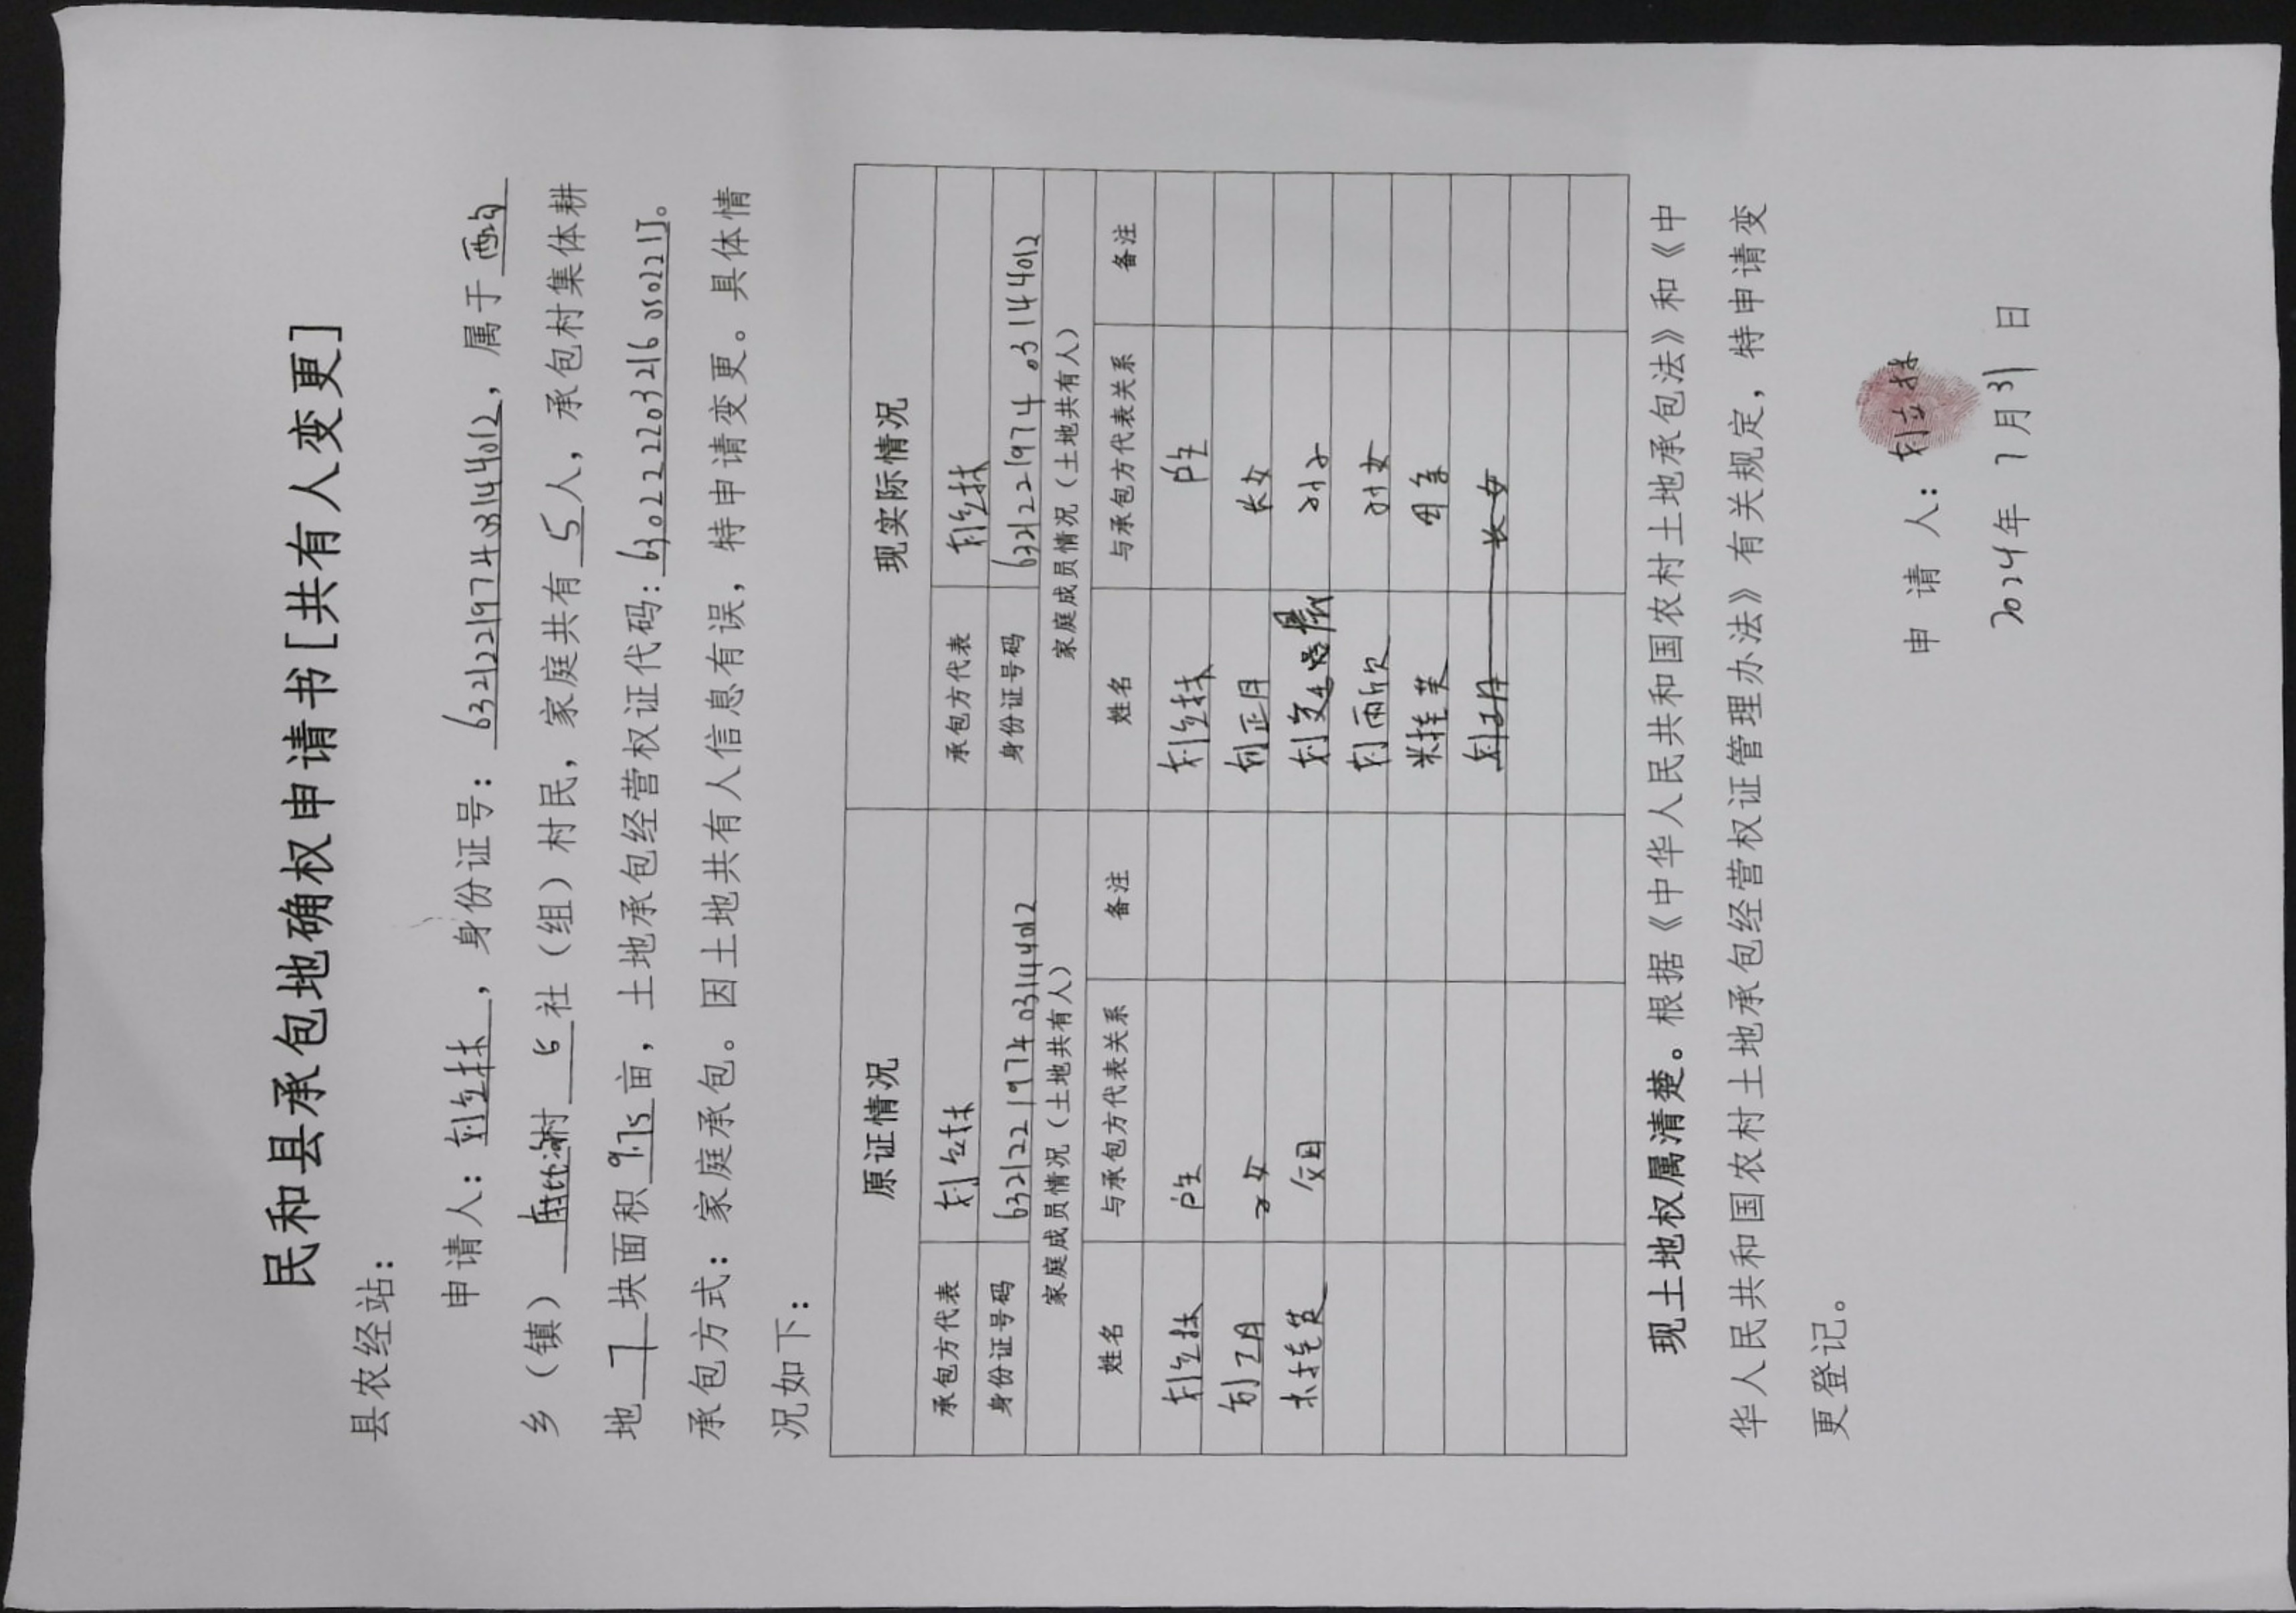 民和县承包地确权申请书[共有人变更]
县农经站：
申请人：刘立林，身份证号：632122197403144012，属于西沟
乡（镝） 村 5 社（组）村民，家庭共有 5 人，承包村集体耕
地 7 块面积 9.75 亩，土地承包经营权证代码：630222203216050221J。
承包方式：家庭承包。因土地共有人信息有误，特申请变更。具体情
况如下：
原证情况 现实际情况
承包方代表 刘立林 承包方代表 刘立林
身份证号码 632122197403144012 身份证号码 632122197403144012
家庭成员情况（土地共有人） 家庭成员情况（土地共有人）
姓名 与承包方代表关系 备注 姓名 与承包方代表关系 备注
刘立林 户主 刘立林 户主
刘正月 子女 刘正月 长女
桂英 父母 刘文 晨 孙子
刘雨欣 孙女
米桂英 母亲
刘正月 长女
现土地权属清楚。根据《中华人民共和国农村土地承包法》和《中
华人民共和国农村土地承包经营权证管理办法》有关规定，特申请变
更登记。
申 请 人：刘立林
2024年 7月31日